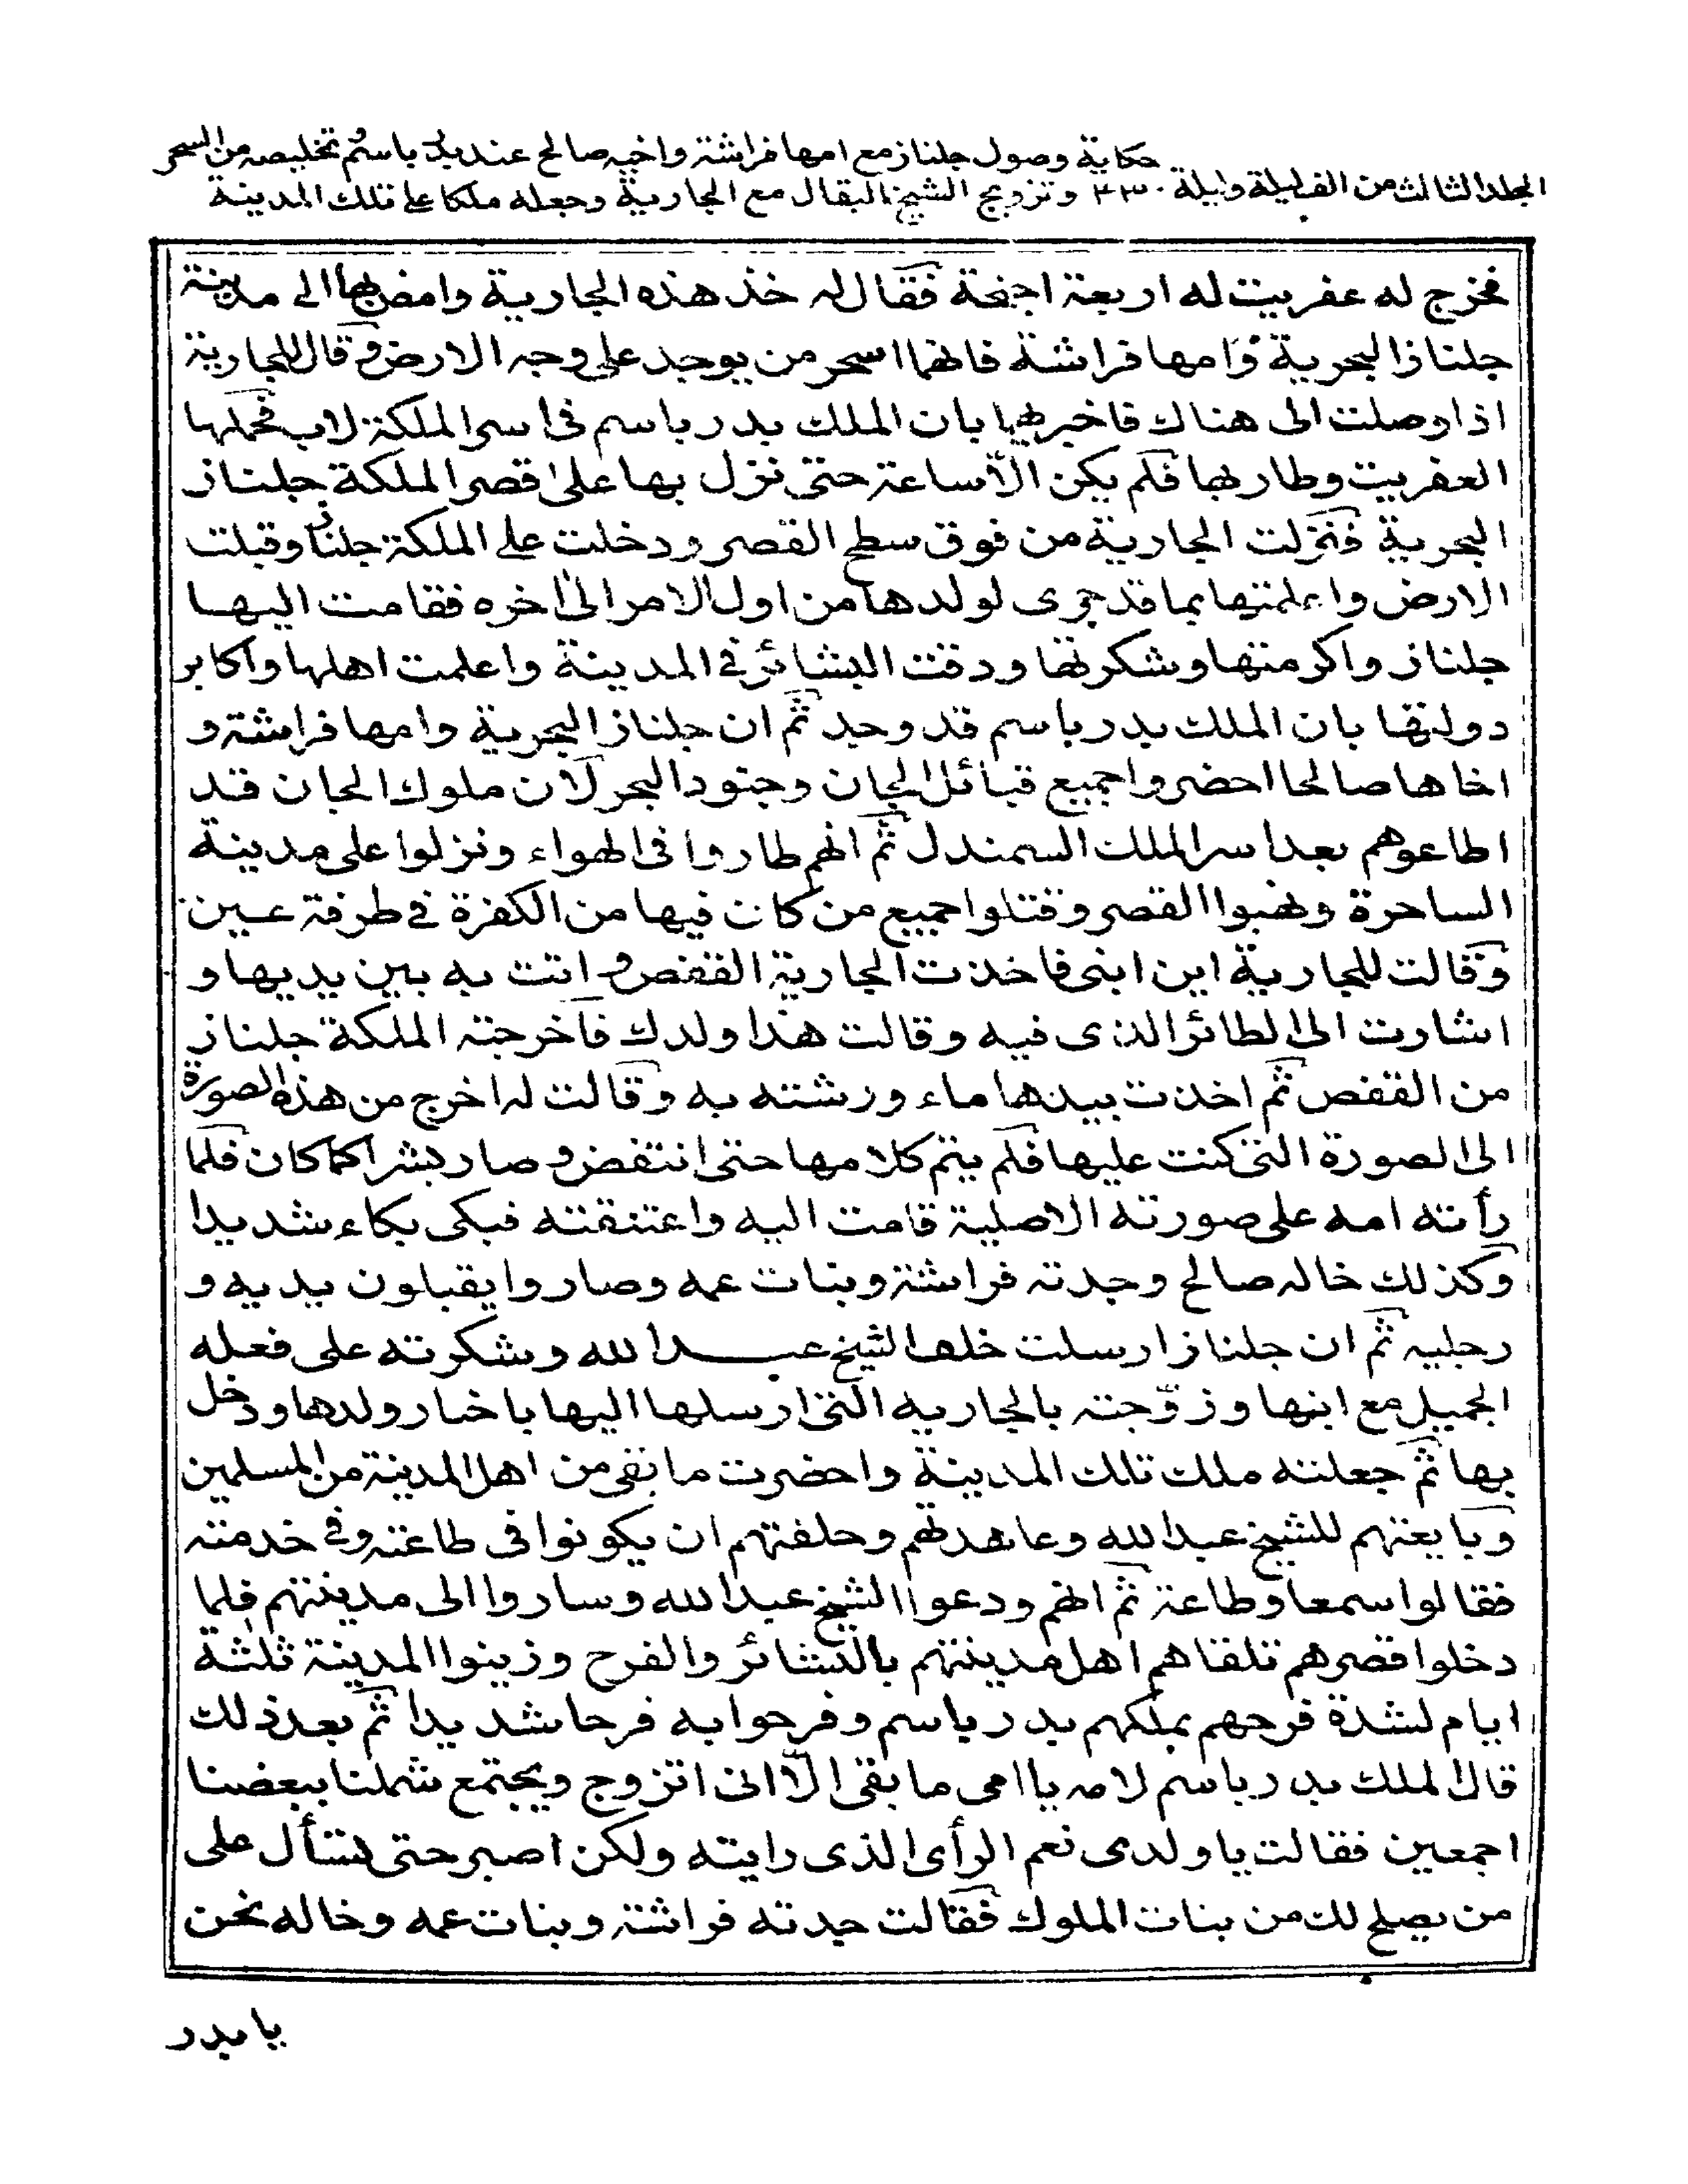 حكاية وصول جلناز مع امها فراشة واخيه صالح عند بدر باسم ثم تخليصه من السحر
المجلد الثالث من الف ليلة وليلة ٣٣٠ وتزويج الشيخ البقال مع الجارية وجعله ملكا على تلك المدينة
فخرج له عفريت له اربعة اجنحة فقال له خذ هذه الجارية وامض بها الى مدينة
جلناز البحرية وامها فراشة فانهما اسحر من يوجد على وجه الارض وقال للجارية
اذا وصلت الى هناك فاخبريها بان الملك بدر باسم فى اسر الملكة لاب فحملها
العفريت وطار بها فلم يكن الّا ساعة حتى نزل بها على قصر الملكة جلناز
البحرية فنزلت الجارية من فوق سطح القصر ودخلت على الملكة جلناز وقبلت
الارض واعلمتها بما قد جرى لولدها من اول الامر الى اخره فقامت اليها
جلناز واكرمتها وشكرتها ودقت البشائر فى المدينة واعلمت اهلها واكابر
دولتها بان الملك بدر باسم قد وجد ثم ان جلناز البحرية وامها فراشة و
اخاها صالحا احضروا جميع قبائل الجان وجنود البحر لان ملوك الجان قد
اطاعوهم بعد اسر الملك السمندل ثم انهم طاروا فى الهواء ونزلوا على مدينة
الساحرة ونهبوا القصر وقتلوا جميع من كان فيها من الكفرة فى طرفة عين
وقالت للجارية اين ابنى فاخذت الجارية القفص واتت به بين يديها و
اشارت الى الطائر الذى فيه وقالت هذا ولدك فاخرجته الملكة جلناز
من القفص ثم اخذت بيدها ماء ورشته به وقالت له اخرج من هذه الصورة
الى الصورة التى كنت عليها فلم يتم كلامها حتى انتفض وصار بشرا كما كان فلما
رأته امه على صورته الاصلية قامت اليه واعتنقته فبكى بكاء شديدا
وكذلك خاله صالح وجدته فراشة وبنات عمه وصاروا يقبلون يديه و
رجليه ثم ان جلناز ارسلت خلف الشيخ عبد الله وشكرته على فعله
الجميل مع ابنها وزوّجته بالجاريه التى ارسلها اليها باخبار ولدها ودخل
بها ثم جعلته ملك تلك المدينة واحضرت ما بقى من اهل المدينة من المسلمين
وبايعتهم للشيخ عبد الله وعاهدتهم وحلفتهم ان يكونوا فى طاعته وفى خدمته
فقالوا سمعا وطاعة ثم انهم ودعوا الشيخ عبد الله وساروا الى مدينتهم فلما
دخلوا قصرهم تلقاهم اهل مدينتهم بالبشائر والفرح وزينوا المدينة ثلثة
ايام لشدة فرحهم بملكهم بدر باسم وفرحوا به فرحا شديدا ثم بعد ذلك
قال الملك بدر باسم لامه يا امى ما بقى الّا انى اتزوج ويجتمع شملنا ببعضنا
اجمعين فقالت يا ولدى نعم الرأى الذى رايته ولكن اصبر حتى نسأل على
من يصلح لك من بنات الملوك فقالت جدته فراشة وبنات عمه وخاله نحن
يا بدر